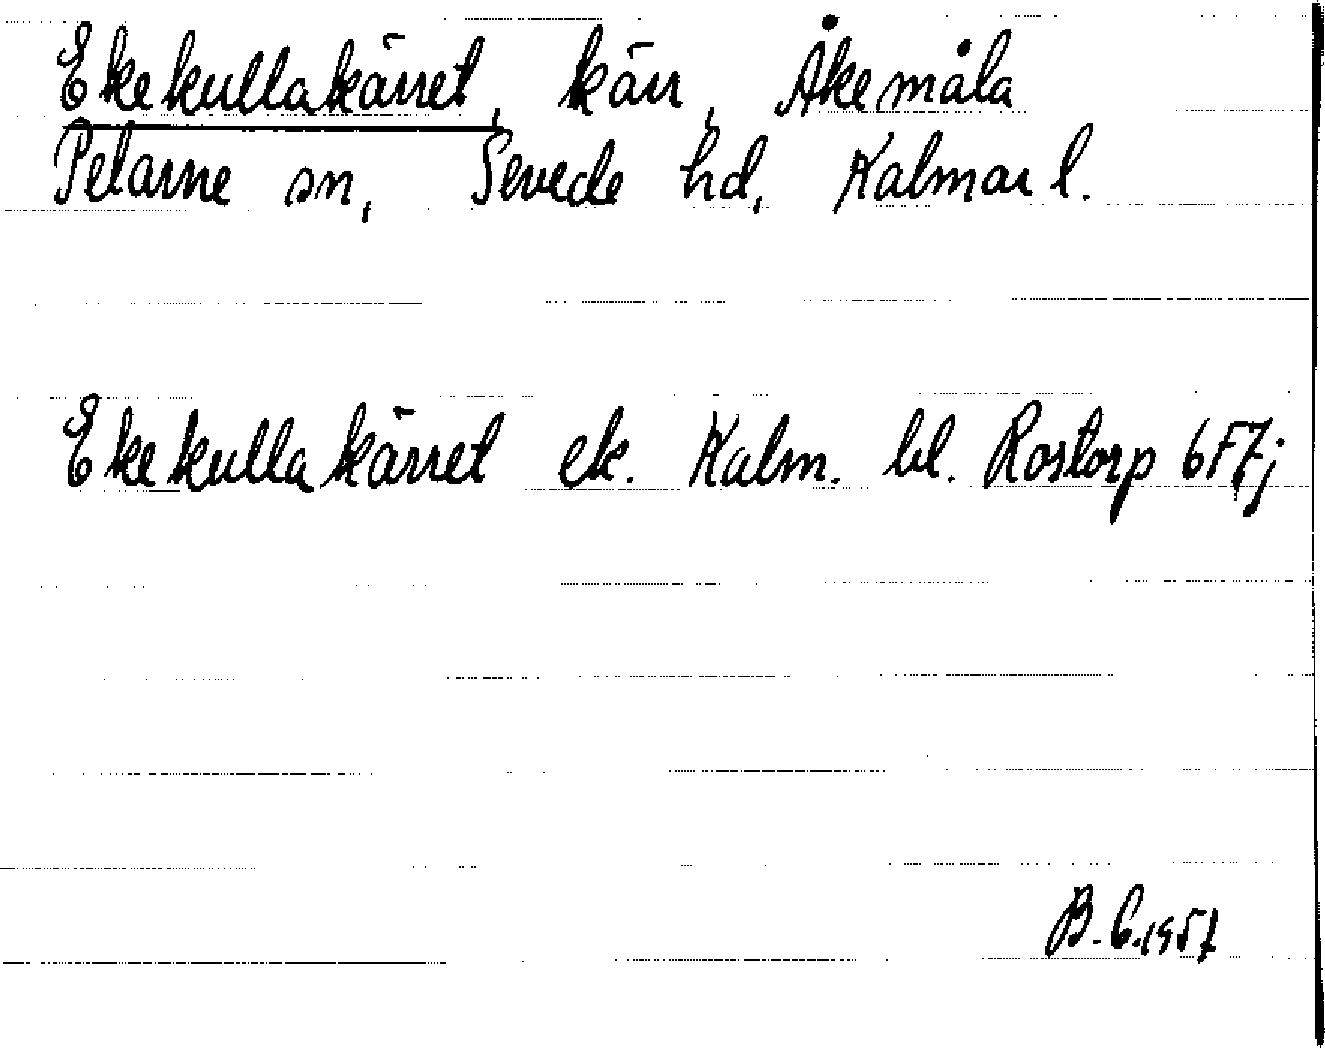 Ekekullakärret, kärr, Åkemåla
Pelarne sn, Sevede hd, Kalmar l.
Ekekullakärret ek. Kalm. bl. Rostorp 6F7j
B. C. 1957